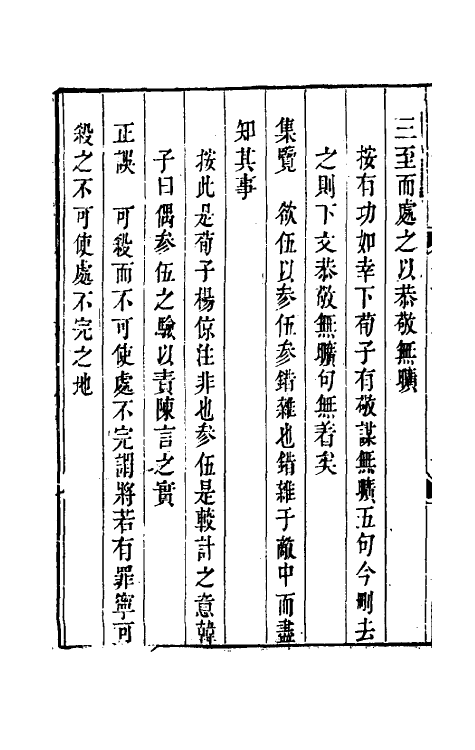 三至而處之以恭敬無曠
按有功如幸下荀子有敬謀無曠五句今刪去
之則下文恭敬無曠句無着矣
集覽　欲伍以參伍參錯雜也錯雜于敵中而盡
知其事
按此是荀子楊倞注非也參伍是較計之意韓
子曰偶參伍之驗以責陳言之實
正誤　可殺而不可使處不完謂將若有罪寧可
殺之不可使處不完之地